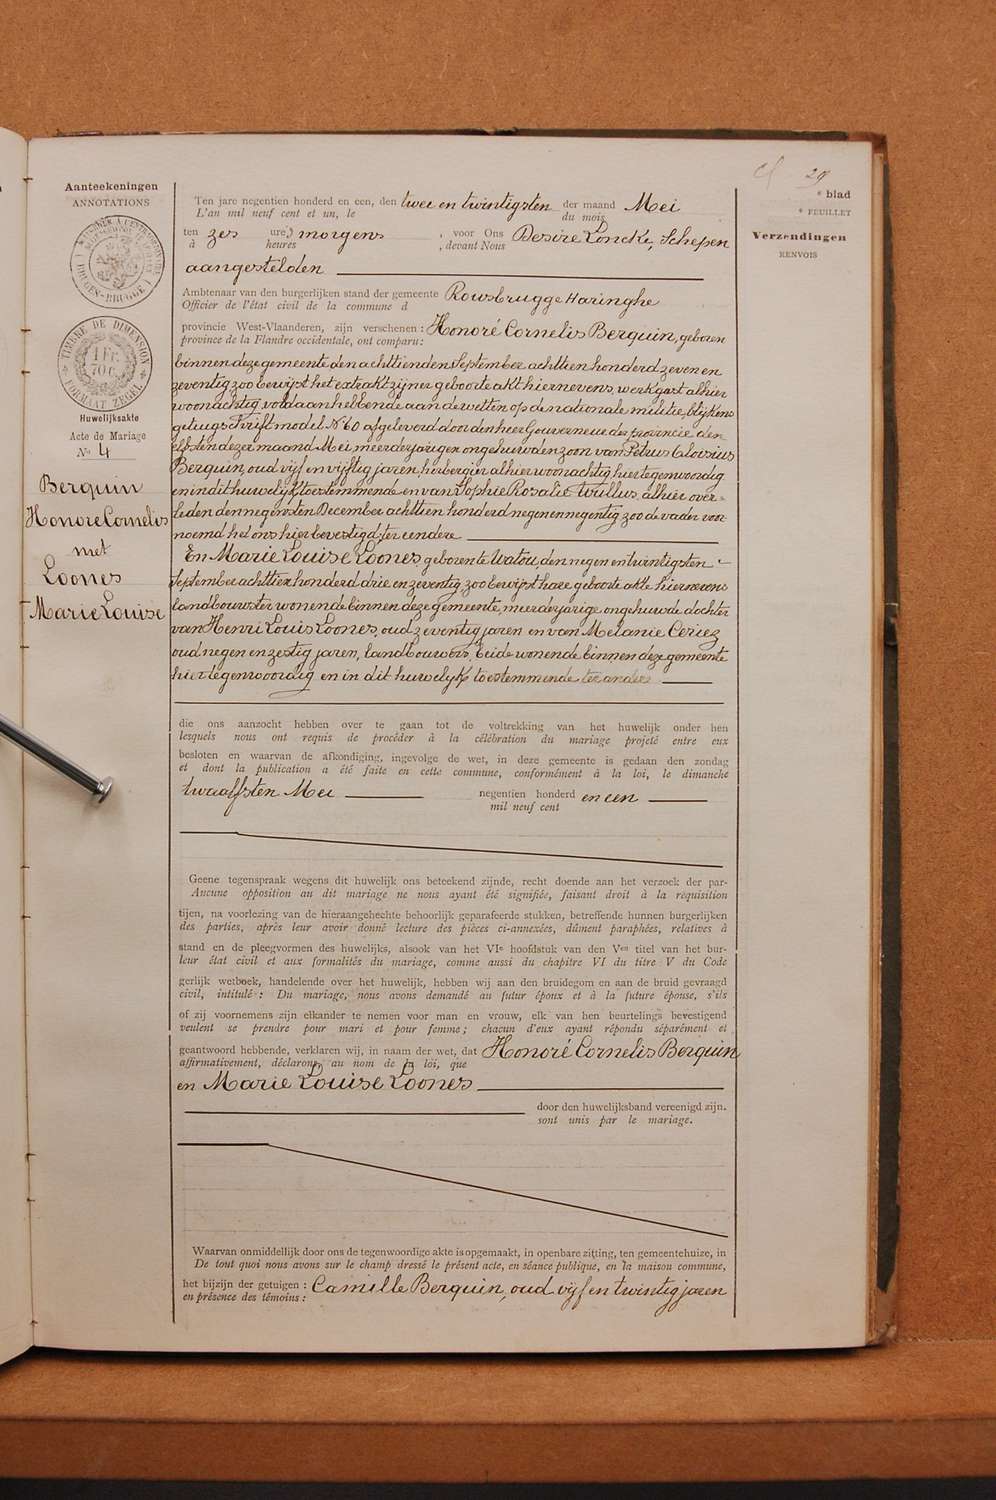 Aanteekeningen
ANNOTATIONS
TIMBRE DE DIMENSION
1 Fr.
70 c.
FORMAAT ZEGEL
Huwelijksakte
Acte de Mariage
No 4
Berquin
Honoré Cornelis
met
Loones
Marie Louise
29
e blad
e FEUILLET
Verzendingen
RENVOIS
Ten jare negentien honderd en een, den twee en twintigsten der maand Mei
L'an mil neuf cent et un, le du mois
ten zes ure, morgens , voor Ons Desiré Loncke, Schepen
à heures , devant Nous
aangestelden
Ambtenaar van den burgerlijken stand der gemeente Rousbrugge Haringhe
Officier de l'état civil de la commune d
provincie West-Vlaanderen, zijn verschenen: Honoré Cornelis Berquin, geboren
province de la Flandre occidentale, ont comparu:
binnen deze gemeente den achttienden September achttien honderd zeven en
zeventig zoo bewijst het extrakt zijner geboorte akt hiernevens, werkgast alhier
woonachtig voldaan hebbende aan de wetten op de nationale militie, blijkens
getuigschrift model No 60 afgeleverd door den heer Gouverneur der provincie den
elfsten dezer maand Mei, meerderjarigen ongehuwden zoon van Petrus Aloysius
Berquin, oud vijf en vijftig jaren, herbergier alhier woonachtig, hier tegenwoordig
en in dit huwelijk toestemmende en van Sophie Rosalie Wullus, alhier over-
leden den negensten December achttien honderd negen en negentig zoo de vader voor
noemd het ons hier bevestigd ter eendere
En Marie Louise Loones, geboren te Watou, den negen en twintigsten
September achttien honderd drie en zeventig, zoo bewijst hare geboorte akte hiernevens
landbouwster wonende binnen deze gemeente, meerderjarige ongehuwde dochter
van Henri Louis Loones, oud zeventig jaren en van Melanie Ceriez
oud negen en zestig jaren, landbouwers, beide wonende binnen deze gemeente
hier tegenwoordig en in dit huwelijk toestemmende ter andere
die ons aanzocht hebben over te gaan tot de voltrekking van het huwelijk onder hen
lesquels nous ont requis de procéder à la célébration du mariage projeté entre eux
besloten en waarvan de afkondiging, ingevolge de wet, in deze gemeente is gedaan den zondag
et dont la publication a été faite en cette commune, conformément à la loi, le dimanche
twaalfsten Mei negentien honderd en een
mil neuf cent
Geene tegenspraak wegens dit huwelijk ons beteekend zijnde, recht doende aan het verzoek der par-
Aucune opposition au dit mariage ne nous ayant été signifiée, faisant droit à la réquisition
tijen, na voorlezing van de hieraangehechte behoorlijk geparafeerde stukken, betreffende hunnen burgerlijken
des parties, après leur avoir donné lecture des pièces ci-annexées, dûment paraphées, relatives à
stand en de pleegvormen des huwelijks, alsook van het VIe hoofdstuk van den Ven titel van het bur-
leur état civil et aux formalités du mariage, comme aussi du chapitre VI du titre V du Code
gerlijk wetboek, handelende over het huwelijk, hebben wij aan den bruidegom en aan de bruid gevraagd
civil, intitulé : Du mariage, nous avons demandé au futur époux et à la future épouse, s'ils
of zij voornemens zijn elkander te nemen voor man en vrouw, elk van hen beurtelings bevestigend
veulent se prendre pour mari et pour femme ; chacun d'eux ayant répondu séparément et
geantwoord hebbende, verklaren wij, in naam der wet, dat Honoré Cornelis Berquin
affirmativement, déclarons, au nom de la loi, que
en Marie Louise Loones
door den huwelijksband vereenigd zijn.
sont unis par le mariage.
Waarvan onmiddellijk door ons de tegenwoordige akte is opgemaakt, in openbare zitting, ten gemeentehuize, in
De tout quoi nous avons sur le champ dressé le présent acte, en séance publique, en la maison commune,
het bijzijn der getuigen : Camille Berquin, oud vijf en twintig jaren
en présence des témoins :